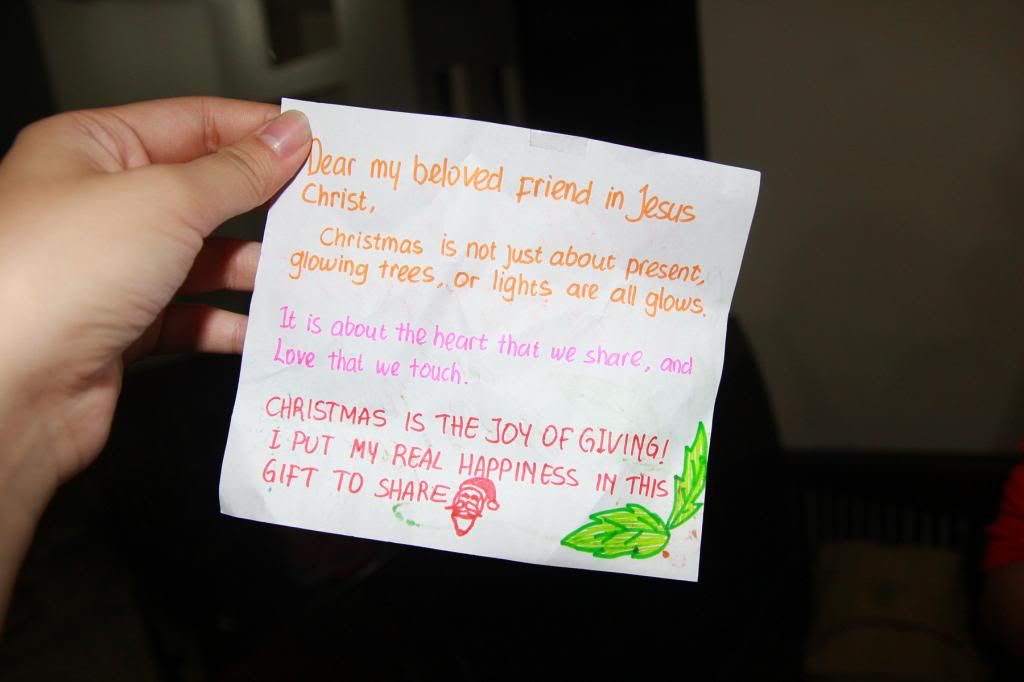 Dear my beloved friend in Jesus
Christ,
Christmas is not just about present,
glowing trees, or lights are all glows.
It is about the heart that we share, and
Love that we touch.
CHRISTMAS IS THE JOY OF GIVING!
I PUT MY REAL HAPPINESS IN THIS
GIFT TO SHARE